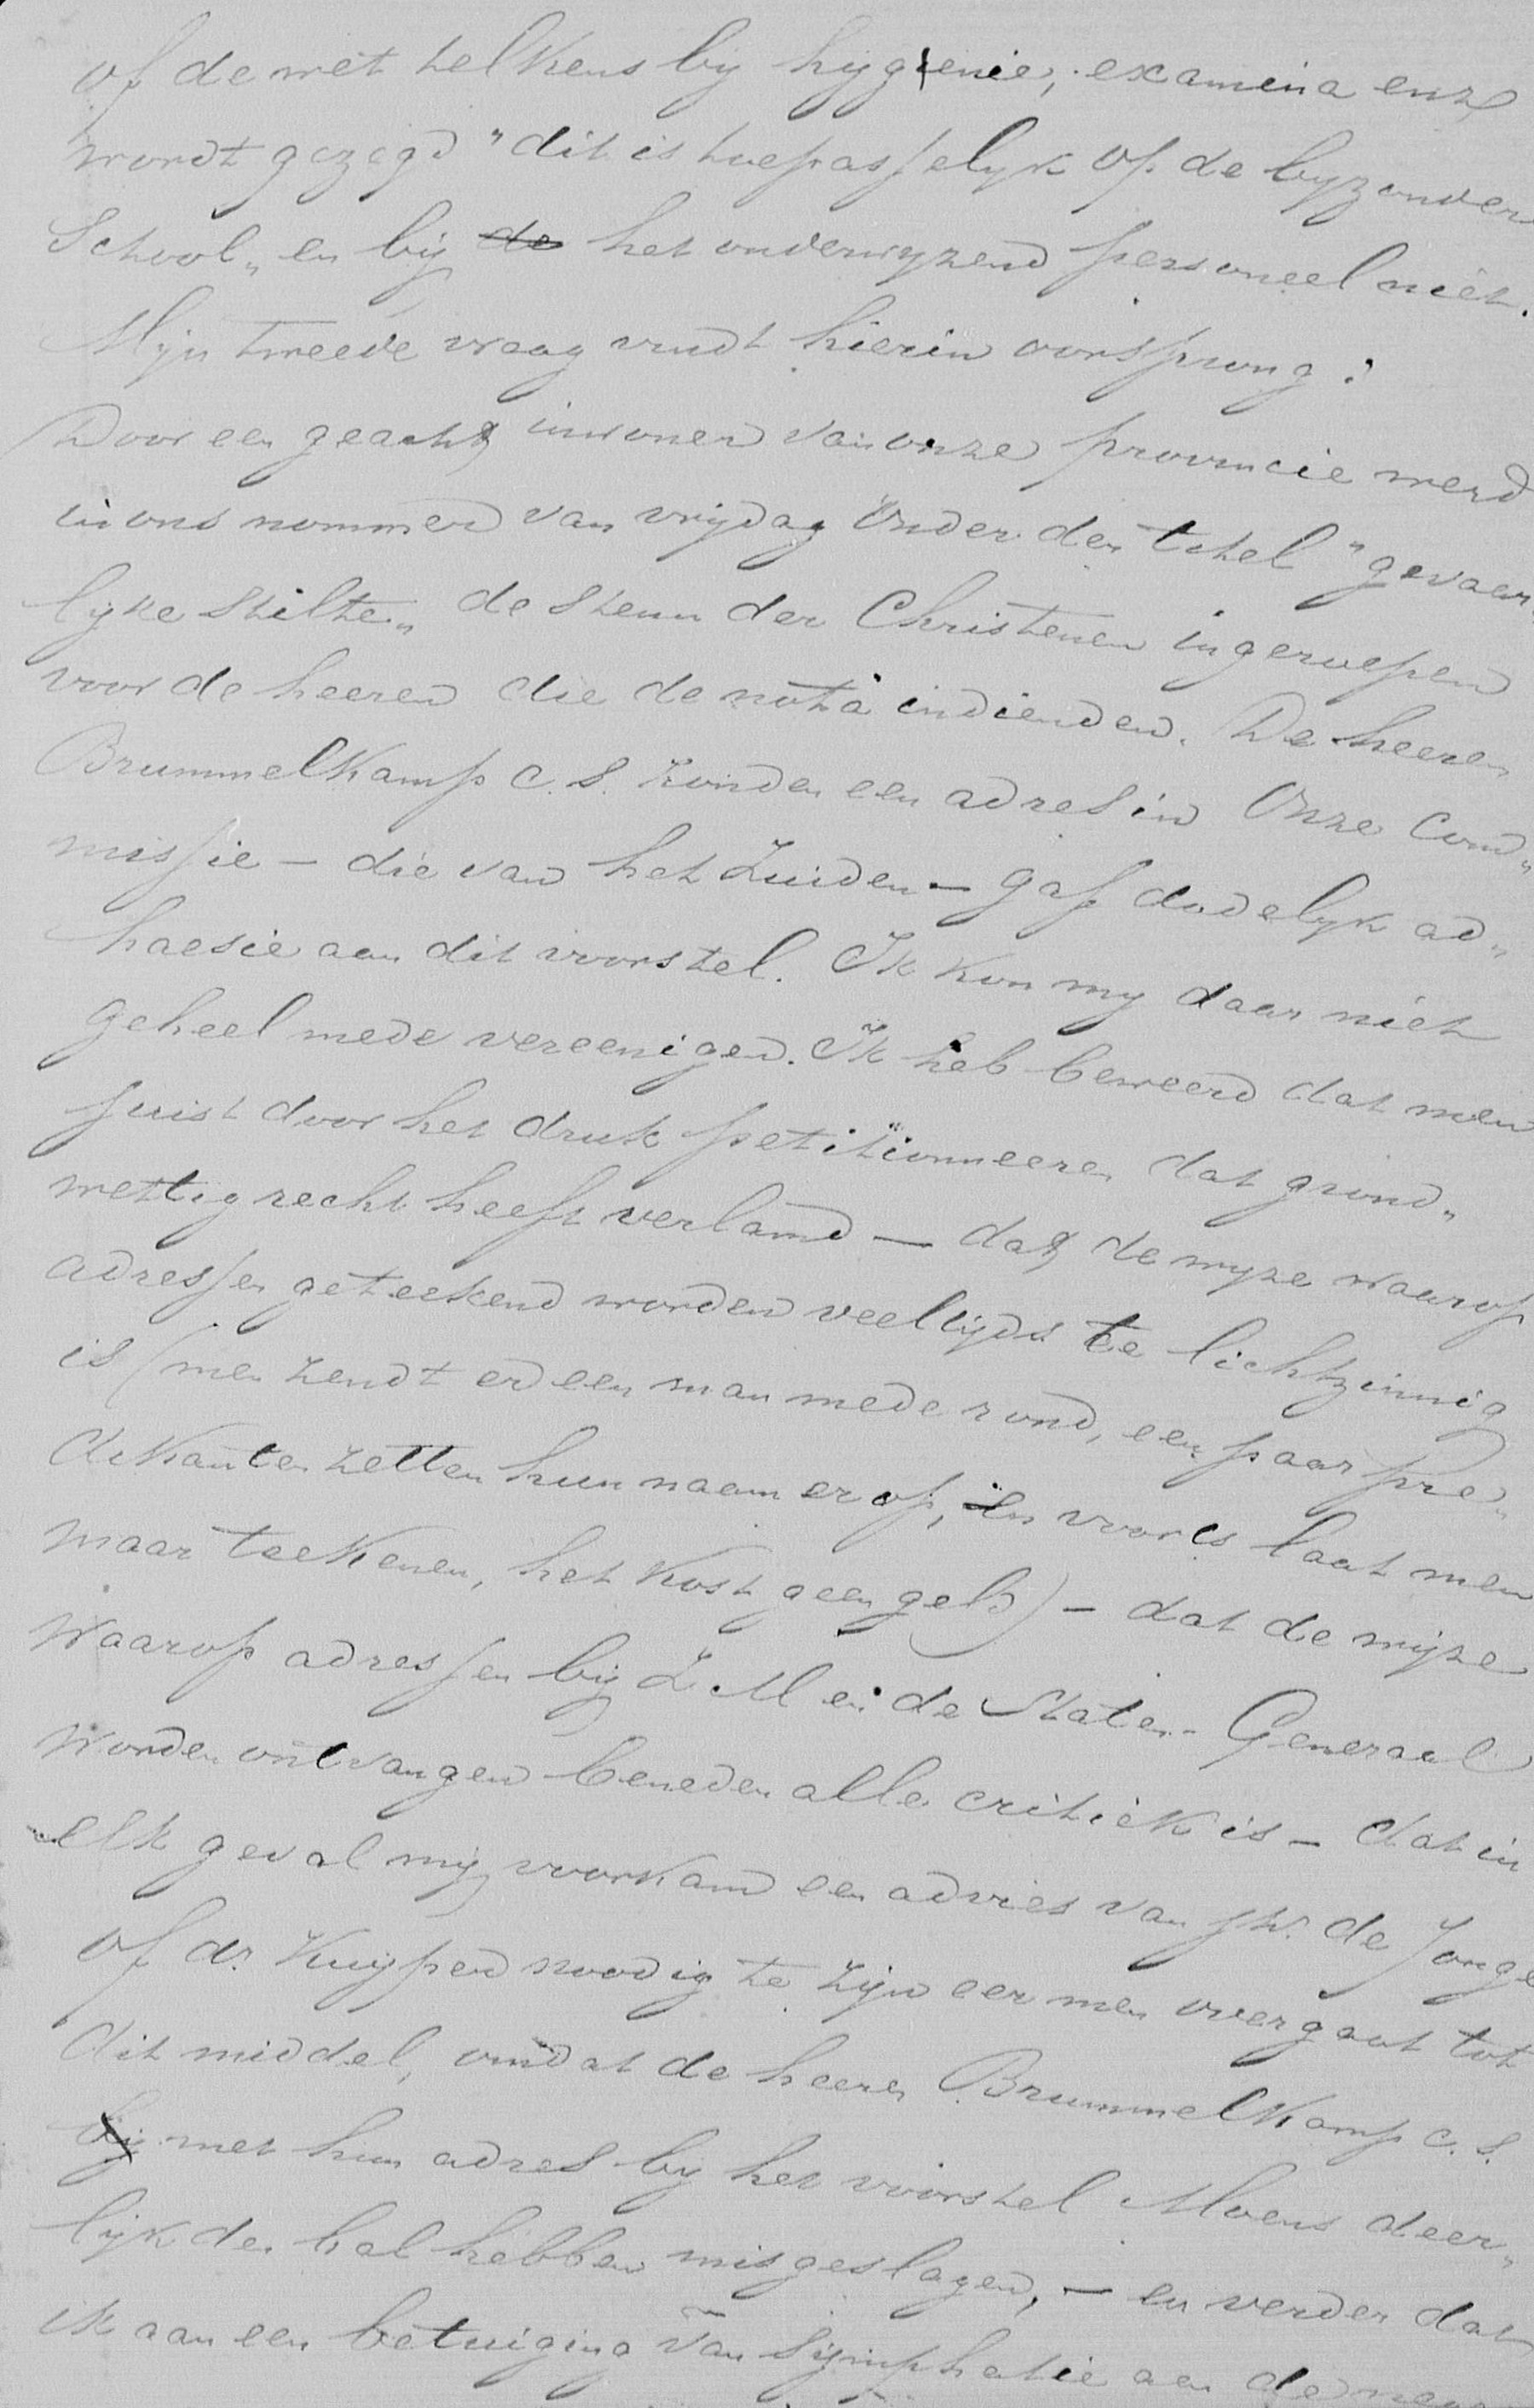 of de wet telkens by hygienie, examina enz
wordt gezegd "dit is toepasselyk op de byzonder
School„ en bij de het onderwyzend personeel niet.
Mijn tweede vraag vindt hierin oorsprong:
Door een geacht inwoner van onze provincie werd
in ons nommer van vrijdag onder den titel "gevaar
lyke stilte„ de steun der Christenen ingeroepen
voor de heeren die de nota indienden. De heeren
Brummelkamp c.s. zonden een adres in Onze Com„
missie – die van het Zuiden – gaf dadelyk ad„
haesie aan dit voorstel. Ik kon my daar niet
geheel mede vereenigen. Ik heb beweerd dat men
juist door het druk petitionneeren dat grond„
wettig recht heeft verlamd – dat de wyze waarop
adressen geteekend worden veeltijds te lichtzinnig
is (men zendt er een man mede rond, een paar pre„
dikanten zetten hun naam er op, en voorts laat men
maar teekenen, het kost geen geld) – dat de wijze
waarop adressen bij Z M en de Staten-Generaal
worden ontvangen beneden alle critiek is – dat in
elk geval mij voorkomt een advies van jhr. de Jonge
of dr. Kuyper noodig te zijn eer men overgaat tot
dit middel, omdat de heeren Brummelkamp c.s.
bij met hun adres by het voorstel Moens deer„
lijk den bal hebben misgeslagen, – en verder dat
ik aan een betuiging van Sijmphatie aan de